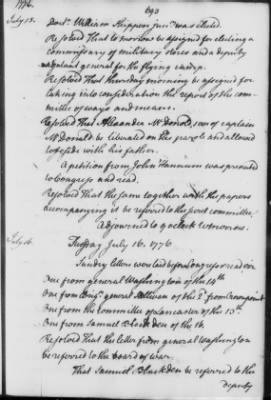 1776.
693
July 15.
Doctr William Shippen junr was elected.
Resolved That to morrow be assigned for electing a
commissary of military stores and a deputy
adjutant general for the flying camp.
Resolved That thursday morning be assigned for
taking into consideration the report of the com-
mittee of ways and means.
Resolved That Alexander McDonald, son of captain
McDonald be liberated on his parole and allowed
to reside with his father.
A petition from John Hannum was presented
to Congress and read.
Resolved That the same together with the papers
accompanying it be referred to the post committee.
Adjourned to 9 o'clock to morrow.
July 16.
Tuesday July 16. 1776
Sundry letters were laid before Congress and read viz
One from general Washington of the 14th
One from general Sullivan of the 2d from Crownpoint
One from the committee of Lancaster of the 13th
One from Samuel Blackden of the 16.
Resolved That the letter from general Washington
be referred to the board of war.
That Samuel Blackden be referred to the
deputy